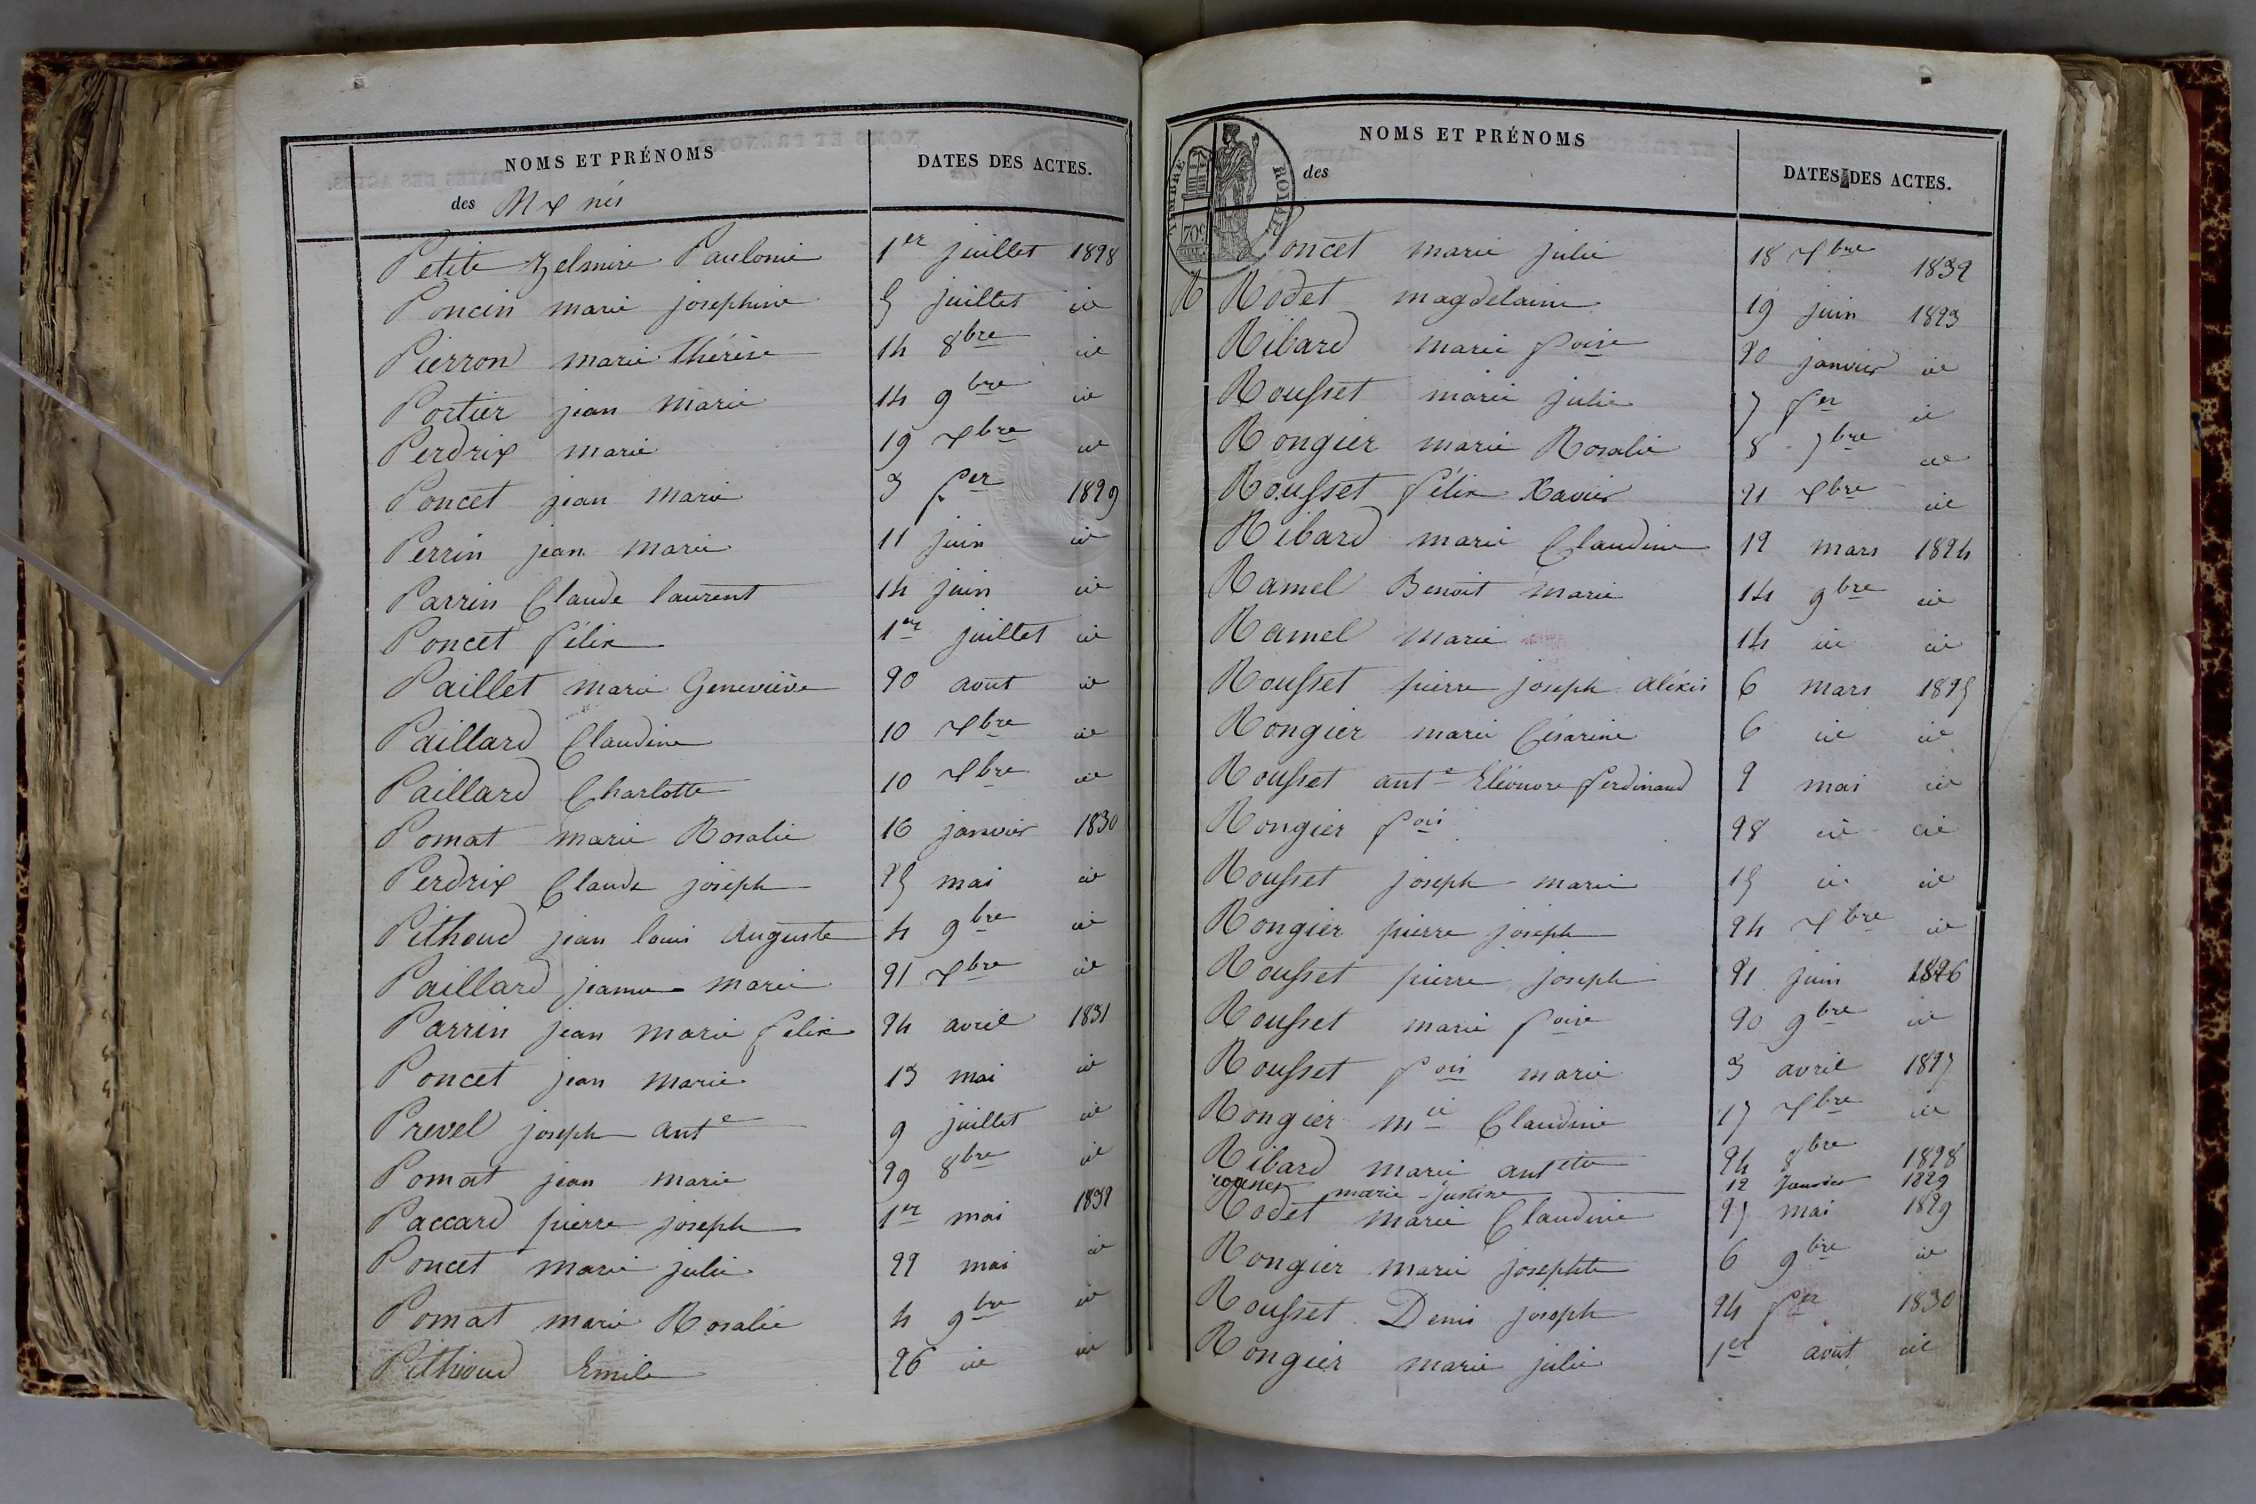 NOMS ET PRÉNOMS
DATES DES ACTES.
des nés
Petite Zelmire Paulonie 1er juillet 1828
Poncin marie josephine 5 juillet id
Pierron marie thérèse 14 8bre id
Portier jean marie 14 9bre id
Perdrix marie 19 Xbre id
Poncet jean marie 3 fer 1829
Perrin jean marie 11 juin id
Parrin Claude laurent 14 juin id
Poncet félix 1er juillet id
Paillet marie Geneviève 20 aout id
Paillard Claudine 10 Xbre id
Paillard Charlotte 10 Xbre id
Pomat marie Rosalie 16 janvier 1830
Perdrix Claude joseph 25 mai id
Pithoud jean louis Auguste 4 9bre id
Paillard jeanne marie 21 Xbre id
Parrin jean marie felix 24 avril 1831
Poncet jean marie 13 mai id
Prevel joseph ante 9 juillet id
Pomat jean marie 29 8bre id
Paccard pierre joseph 1er mai 1832
Poncet marie julie 22 mai id
Pomat marie Rosalie 4 9bre id
Pithioud Emile 26 id id
NOMS ET PRÉNOMS
des
DATES DES ACTES.
TIMBRE ROYAL
70c
Poncet marie julie 18 Xbre 1832
R Rodet magdelaine 19 juin 1823
Ribard marie foise 20 janvier id
Rousset marie julie 7 fer id
Rongier marie Rosalie 8 7bre id
Rousset félix Xavier 21 Xbre id
Ribard marie Claudine 12 mars 1824
Ramel Benoit marie 14 9bre id
Ramel marie 14 id id
Rousset pierre joseph aléxis 6 mars 1825
Rongier marie Césarine 6 id id
Rousset ante Eléonore ferdinand 2 mai id
Rongier fois 28 id id
Rousset joseph marie 15 id id
Rongier pierre joseph 24 Xbre id
Rousset pierre joseph 21 juin 1826
Rousset marie foise 20 9bre id
Rousset fois marie 3 avril 1827
Rongier mie Claudine 17 Xbre id
Ribard marie antette 24 8bre 1828
marie Justine 12 Janvier 1829
Rodet marie Claudine 27 mai 1829
Rongier marie josephte 6 9bre id
Rousset Denis joseph 24 fer 1830
Rongier marie julie 1er aout id